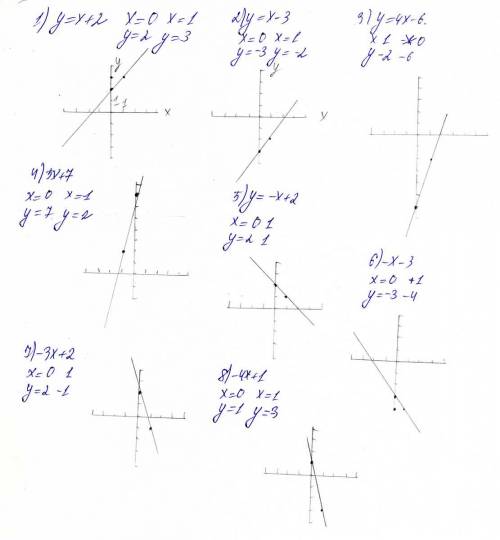 1) y=x+2 x=0 x=1
y=2 y=3
y
1
x
2) y=x-3
x=0 x=1
y=-3 y=-2
y
x
3) y=4x-6.
x 1 0
y -2 -6
4) 3x+7
x=0 x=1
y=7 y=2
5) y=-x+2
x=0 1
y=2 1
6) -x-3
x=0 +1
y=-3 -4
7) -3x+2
x=0 1
y=2 -1
8) -4x+1
x=0 x=1
y=1 y=3